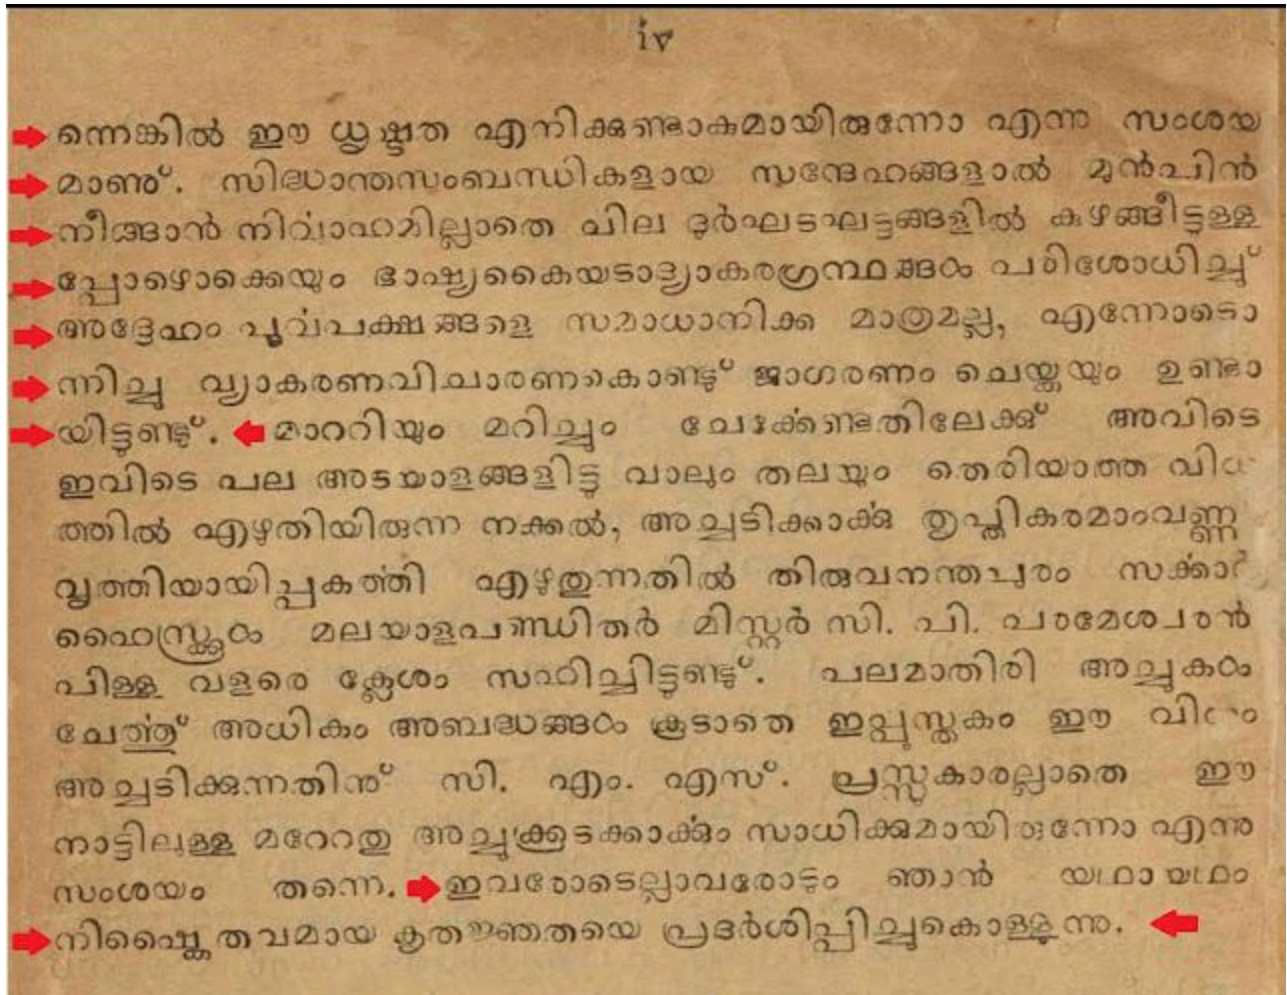 iv
ന്നെങ്കിൽ ഈ ധൃഷ്ടത എനിക്കുണ്ടാകുമായിരുന്നോ എന്നു സംശയ
മാണു്. സിദ്ധാന്തസംബന്ധികളായ സന്ദേഹങ്ങളാൽ മുൻപിൻ
നീങ്ങാൻ നിൎവാഹമില്ലാതെ ചില ദുർഘടഘട്ടങ്ങളിൽ കുഴങ്ങീട്ടുള്ള
പ്പോഴൊക്കെയും ഭാഷ്യകൈയടാദ്യാകരഗ്രന്ഥങ്ങൾ പരിശോധിച്ചു്
അദ്ദേഹം പൂൎവപക്ഷങ്ങളെ സമാധാനിക്ക മാത്രമല്ല, എന്നോടൊ
ന്നിച്ചു വ്യാകരണവിചാരണകൊണ്ടു് ജാഗരണം ചെയ്കയും ഉണ്ടാ
യിട്ടുണ്ടു്. മാററിയും മറിച്ചും ചേൎക്കേണ്ടതിലേക്കു് അവിടെ
ഇവിടെ പല അടയാളങ്ങളിട്ടു വാലും തലയും തെരിയാത്ത വിധ
ത്തിൽ എഴുതിയിരുന്ന നക്കൽ, അച്ചടിക്കാൎക്കു തൃപ്തികരമാംവണ്ണ
വൃത്തിയായിപ്പകൎത്തി എഴുതുന്നതിൽ തിരുവനന്തപുരം സൎക്കാർ
ഹൈസ്ക്കൂൾ മലയാളപണ്ഡിതർ മിസ്റ്റർ സി. പി. പരമേശ്വരൻ
പിള്ള വളരെ ക്ലേശം സഹിച്ചിട്ടുണ്ടു്. പലമാതിരി അച്ചുകൾ
ചേൎത്തു് അധികം അബദ്ധങ്ങൾ കൂടാതെ ഇപ്പുസ്തകം ഈ വിധം
അച്ചടിക്കുന്നതിനു് സി. എം. എസ്. പ്രസ്സുകാരല്ലാതെ ഈ
നാട്ടിലുള്ള മറേറതു അച്ചുക്കൂടക്കാൎക്കും സാധിക്കുമായിരുന്നോ എന്നു
സംശയം തന്നെ. ഇവരോടെല്ലാവരോടും ഞാൻ യഥായഥം
നിഷ്കൈതവമായ കൃതജ്ഞതയെ പ്രദർശിപ്പിച്ചുകൊള്ളുന്നു.